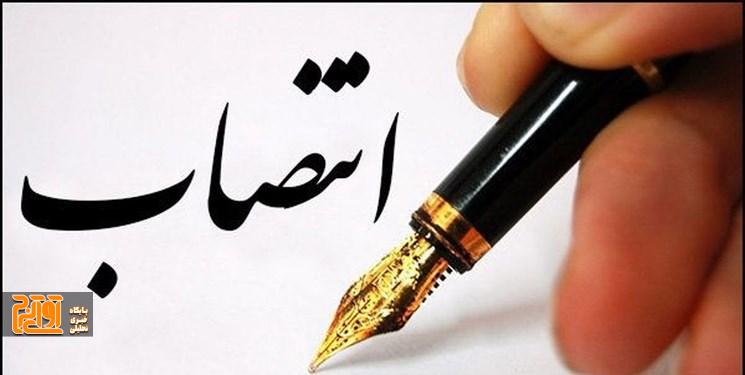 انتصاب
پایگاه
خبری
تحلیلی